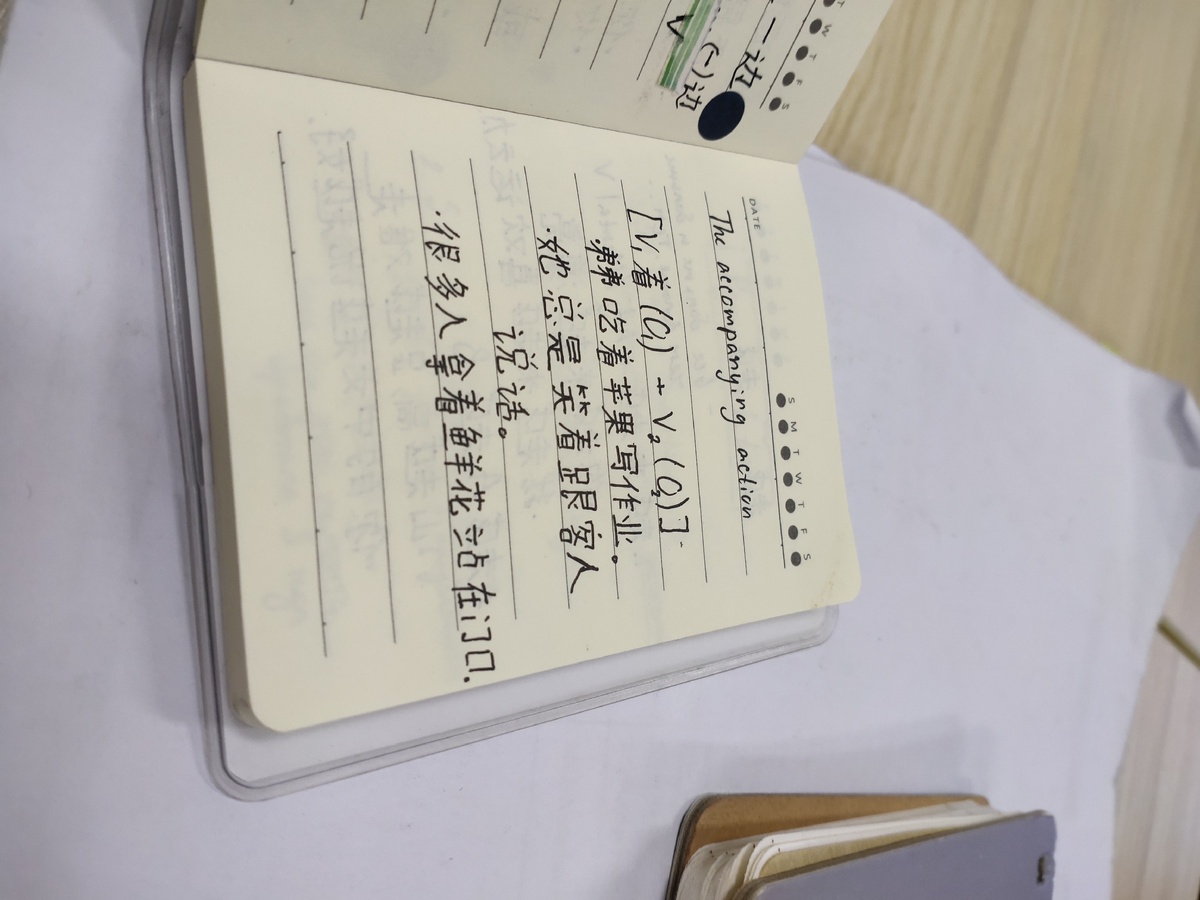 T W T F S
一边
(一)边
V
S M T W T F S
DATE
The accompanying action
[V₁着(O₁) + V₂(O₂)]
弟弟吃着苹果写作业。
·她总是笑着跟客人
说话。
·很多人拿着鲜花站在门口.